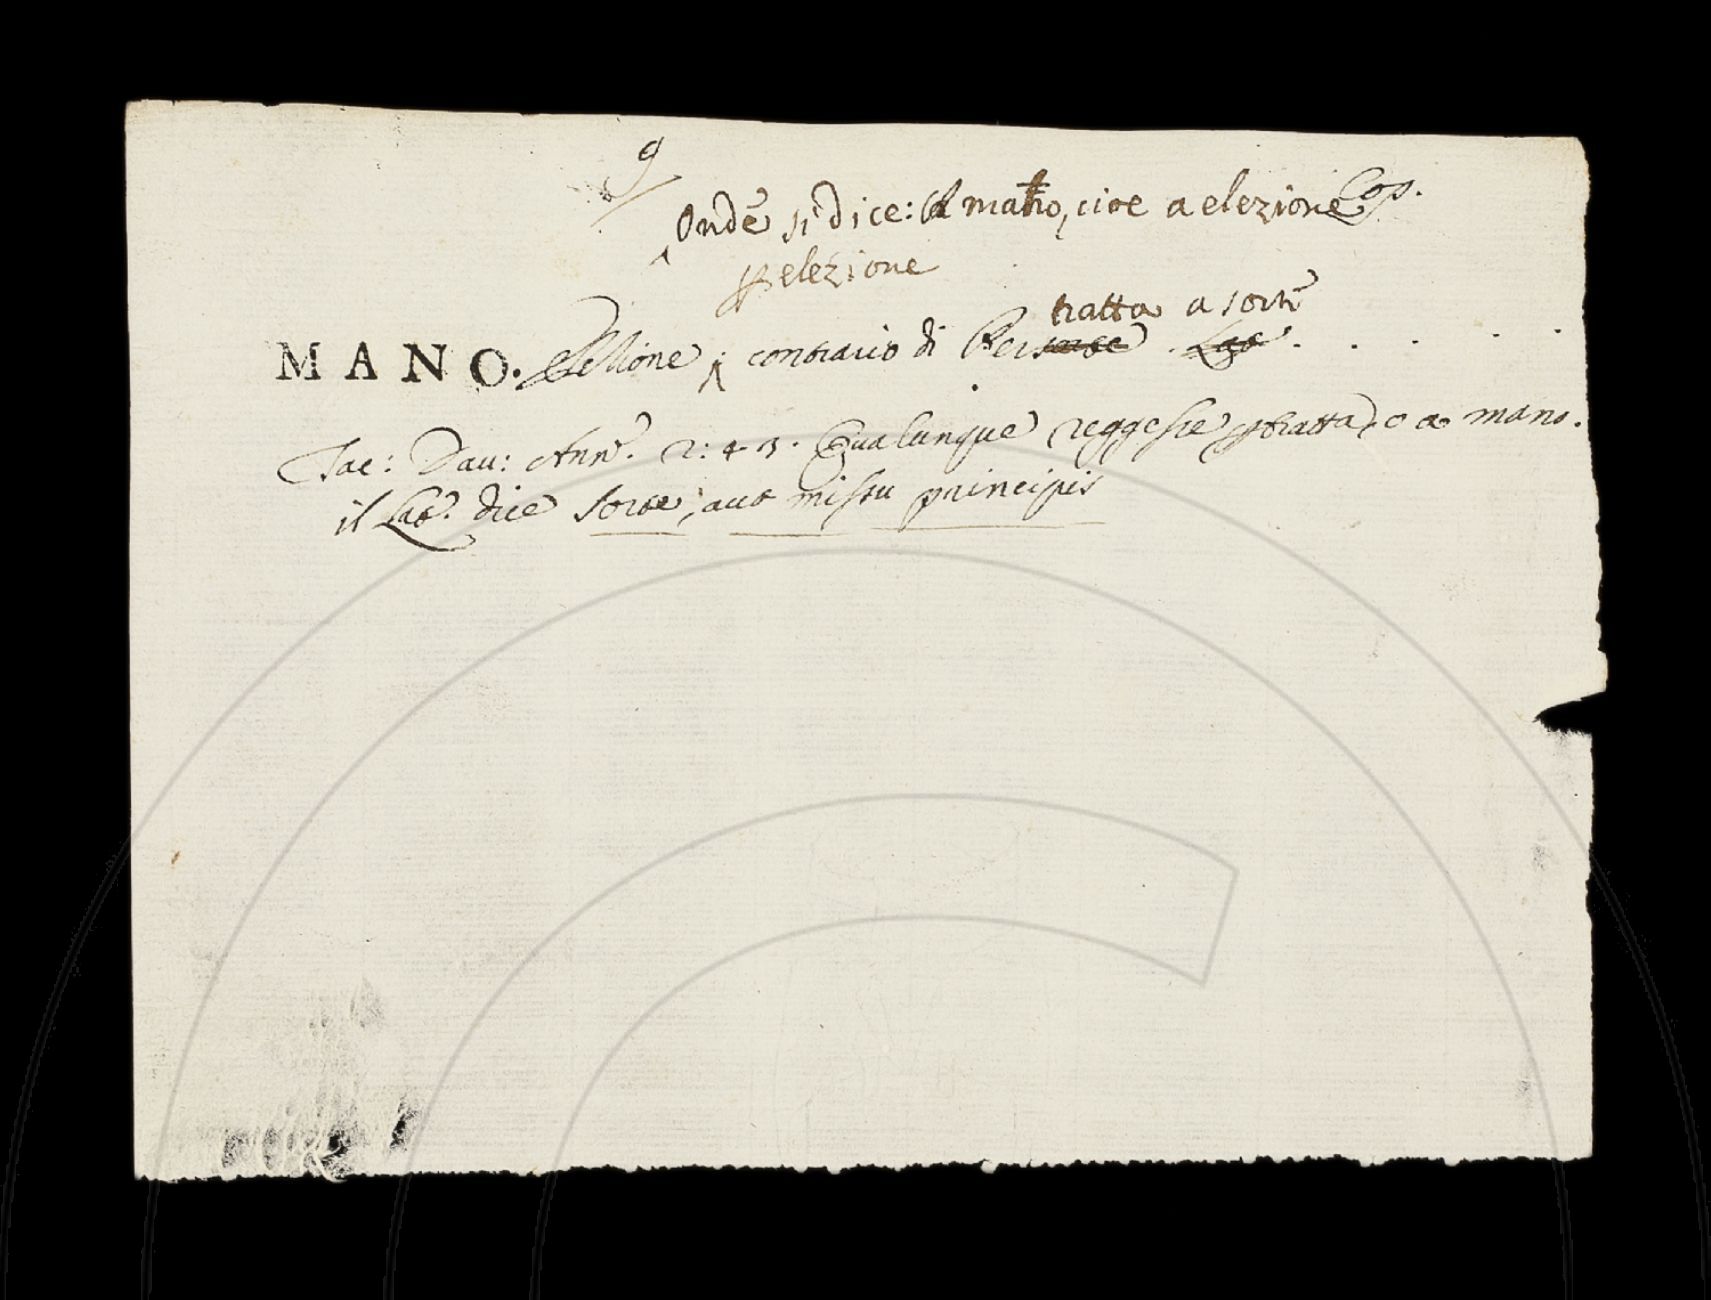 9
Onde si dice: A mano, cioe a elezione Cop.
p elezione
tratta a sorte
MANO. Elezione, contrario di Per sorte Lat. . . . .
Tac: Dau: Ann. 2: 43. Qualunque reggesse p tratta, o a mano.
il Lat. dice sorte, aut missu principis